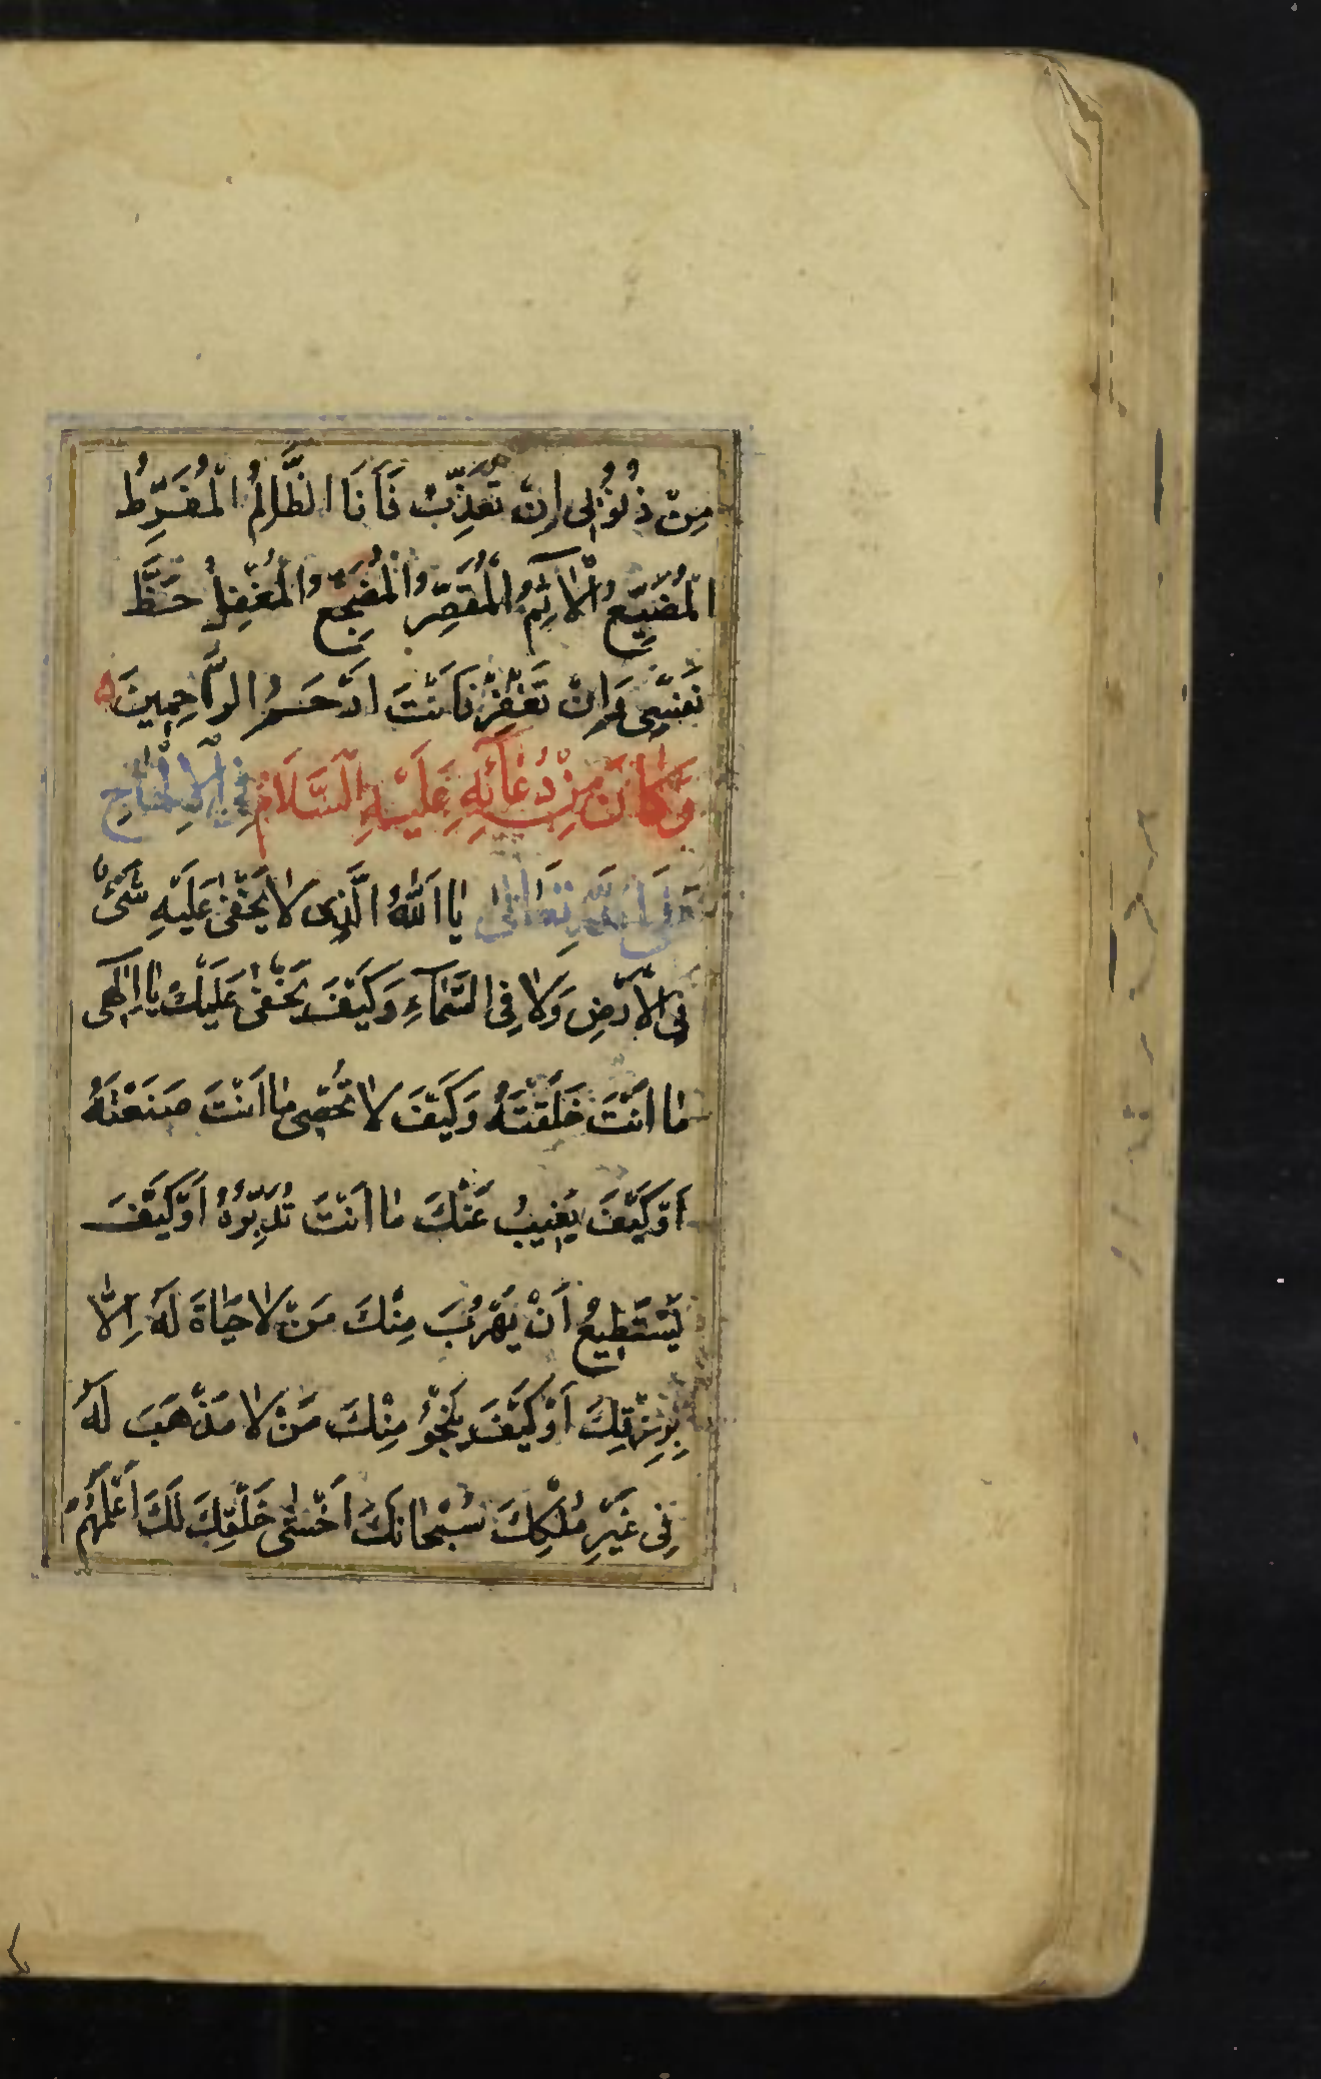 مِنْ ذُنُوْبِى اِنْ تُعَذِّبْ فَاَنَا الظَّالِمُ الْمُفَرِّطُ
الْمُضَيِّعُ الْاٰثِمُ الْمُقَصِّرُ الْمُضَجِّعُ الْمُغْفِلُ حَظَّ
نَفْسِى وَاِنْ تَغْفِرْ فَاَنْتَ اَرْحَمُ الرَّاحِمِينَ
وَكَانَ مِنْ دُعَآئِهِ عَلَيْهِ السَّلَامُ فِى الْاِلْحَاحِ
عَلَى اللّٰهِ تَعَالٰى يٰا اَللّٰهُ الَّذِى لٰا يَخْفٰى عَلَيْهِ شَىْءٌ
فِى الْاَرْضِ وَلٰا فِى السَّمٰآءِ وَكَيْفَ يَخْفٰى عَلَيْكَ يٰا اِلٰهِى
مٰا اَنْتَ خَلَقْتَهُ وَكَيْفَ لٰا تُحْصِى مٰا اَنْتَ صَنَعْتَهُ
اَوْ كَيْفَ يَغِيبُ عَنْكَ مٰا اَنْتَ تُدَبِّرُهُ اَوْ كَيْفَ
يَسْتَطِيعُ اَنْ يَهْرُبَ مِنْكَ مَنْ لٰا حَيٰاةَ لَهُ اِلّٰا
بِرِزْقِكَ اَوْ كَيْفَ يَنْجُو مِنْكَ مَنْ لٰا مَذْهَبَ لَهُ
فِى غَيْرِ مُلْكِكَ سُبْحٰانَكَ اَخْشٰى خَلْقِكَ لَكَ اَعْلَمُهُمْ